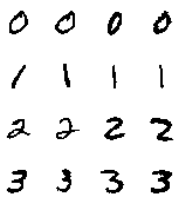 0 0 0 0
1 1 1 1
2 2 2 2
3 3 3 3